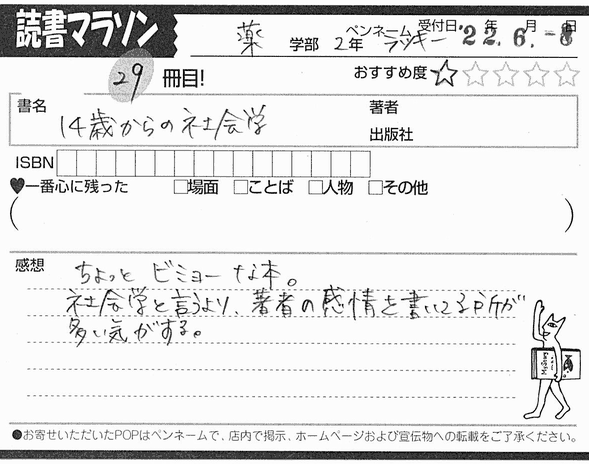 読書マラソン
薬 学部 2年 ペンネーム ラッキー 受付日 '22.年6.月-8日
29 冊目! おすすめ度 ★☆☆☆☆
書名 14歳からの社会学
著者
出版社
ISBN
♥一番心に残った □場面 □ことば □人物 □その他
( )
感想 ちょっと ビミョーな本。
社会学と言うより、著者の感情を書いてる所が
多い気がする。
●お寄せいただいたPOPはペンネームで、店内で掲示、ホームページおよび宣伝物への転載をご了承ください。